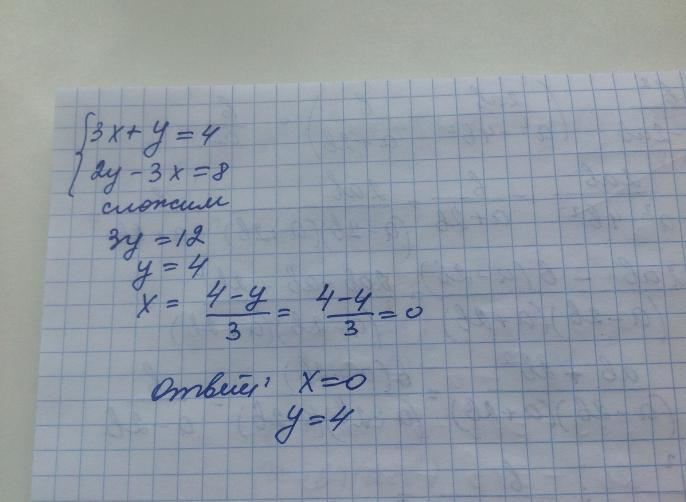 {3x+y=4
2y-3x=8
сложим
3y=12
y=4
x = (4-y)/3 = (4-4)/3 = 0
Ответ: x=0
y=4